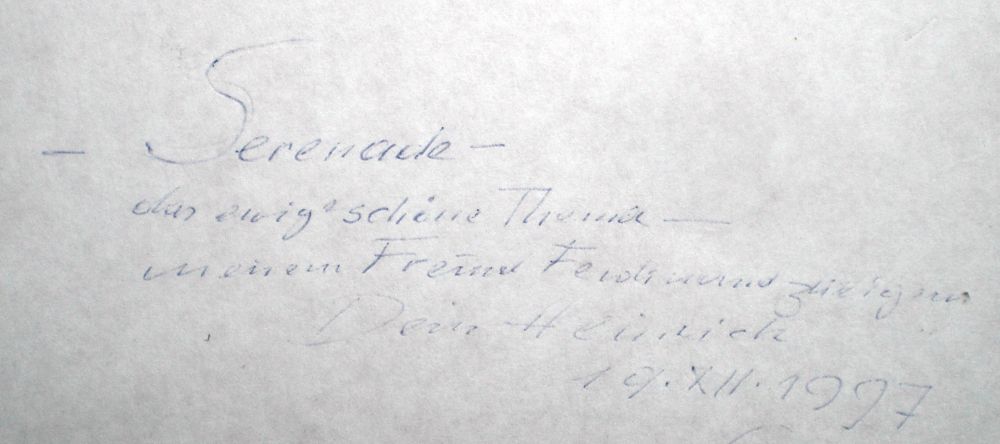 - Serenade -
das ewig schöne Thema -
meinem Freund Ferdinand
Dein Heinrich
19.XII.1997